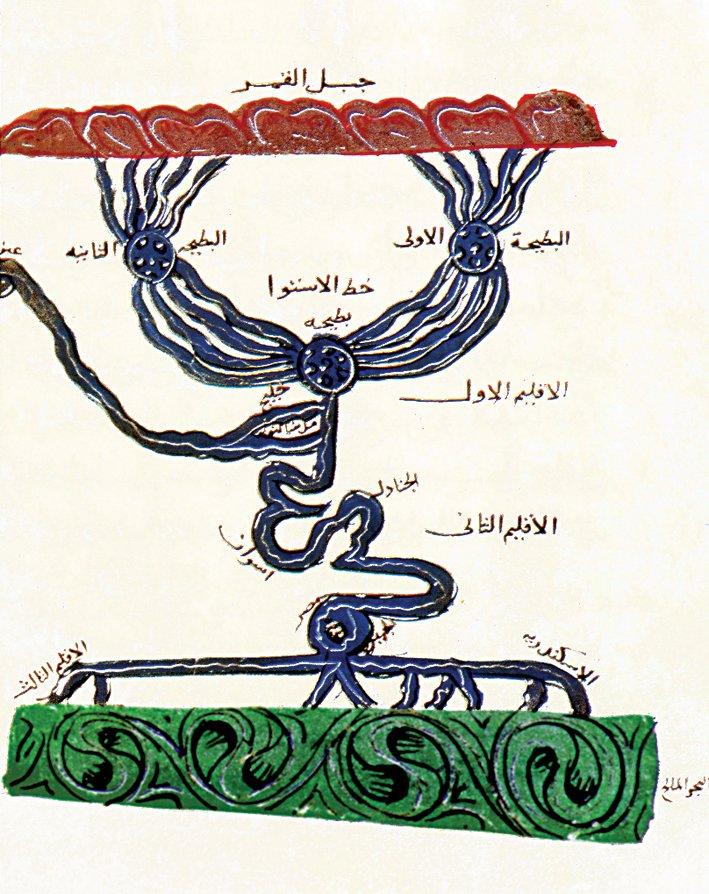 جبل القمر
البطيحة الاولى
البطيحه الثانيه
خط الاستوا
بطيحه
الاقليم الاول
خليج
الجنادل
الاقليم الثانى
اسوان
الاسكندريه
الاقليم الثالث
البحر المالح